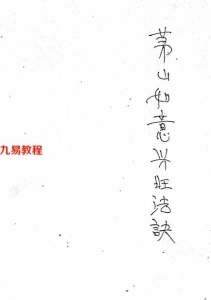 茅山如意兴旺法訣
九易教程